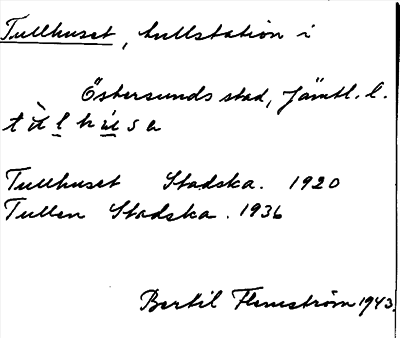 Tullhuset, tullstation i
Östersunds stad, Jämtl. l.
tùlhúsə
Tullhuset Stadska. 1920
Tullen Stadska. 1936
Bertil Flemström 1943.